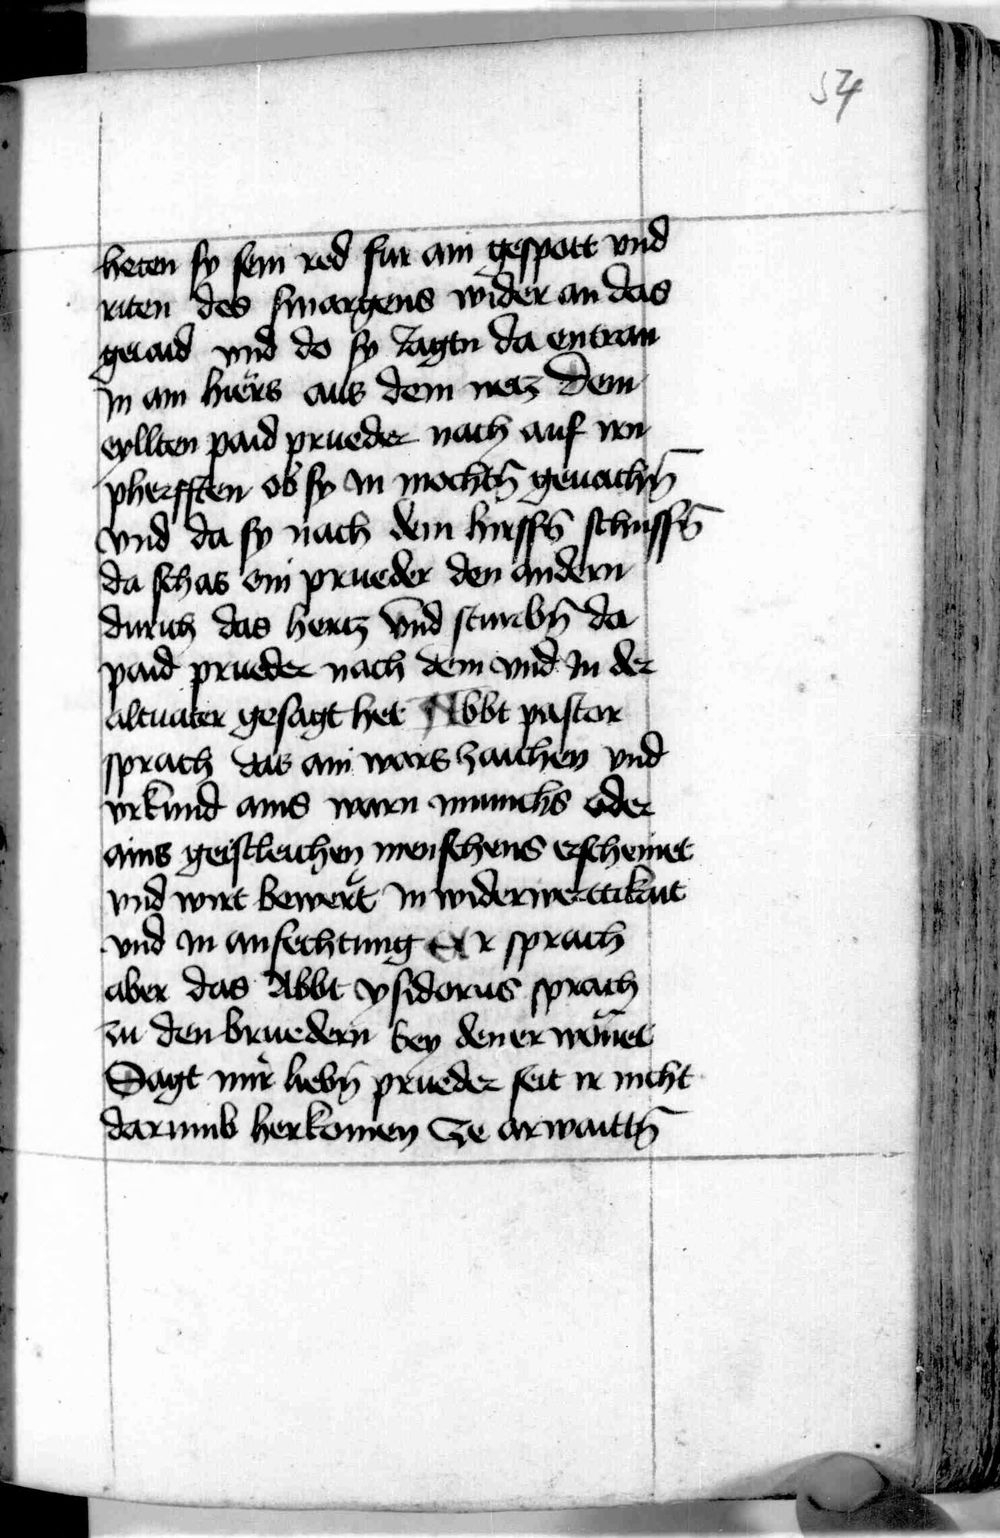 54
heten sy sein red fur ain gespott vnd
riten des smargens wider an das
geiaid vnd do sy Jagtn da entran
in ain hiers aus dem netz dem
eyllten paid prueder nach auf irn
pherfften ob sy in mochtn̄ geuachn̄
vnd da sy nach dem hirssn̄ schussn̄
da schas ain prueder den andern
durich das hertz vnd sturbn̄ da
paid prueder nach dem vnd In der
altuater gesagt het Abbt pastor
sprach das ain wars zaichen vnd
vrkund ains warn munichs oder
ains geistleichen menschens erscheinet
vnd wirt bewert in widerwerttikait
vnd in anfechtung Er sprach
aber das Abbt ysidorus sprach
zu den bruedern bey den er wonet
Sagt mir liebn̄ prueder seit ir nicht
darumb herkomen Ze arwaittn̄